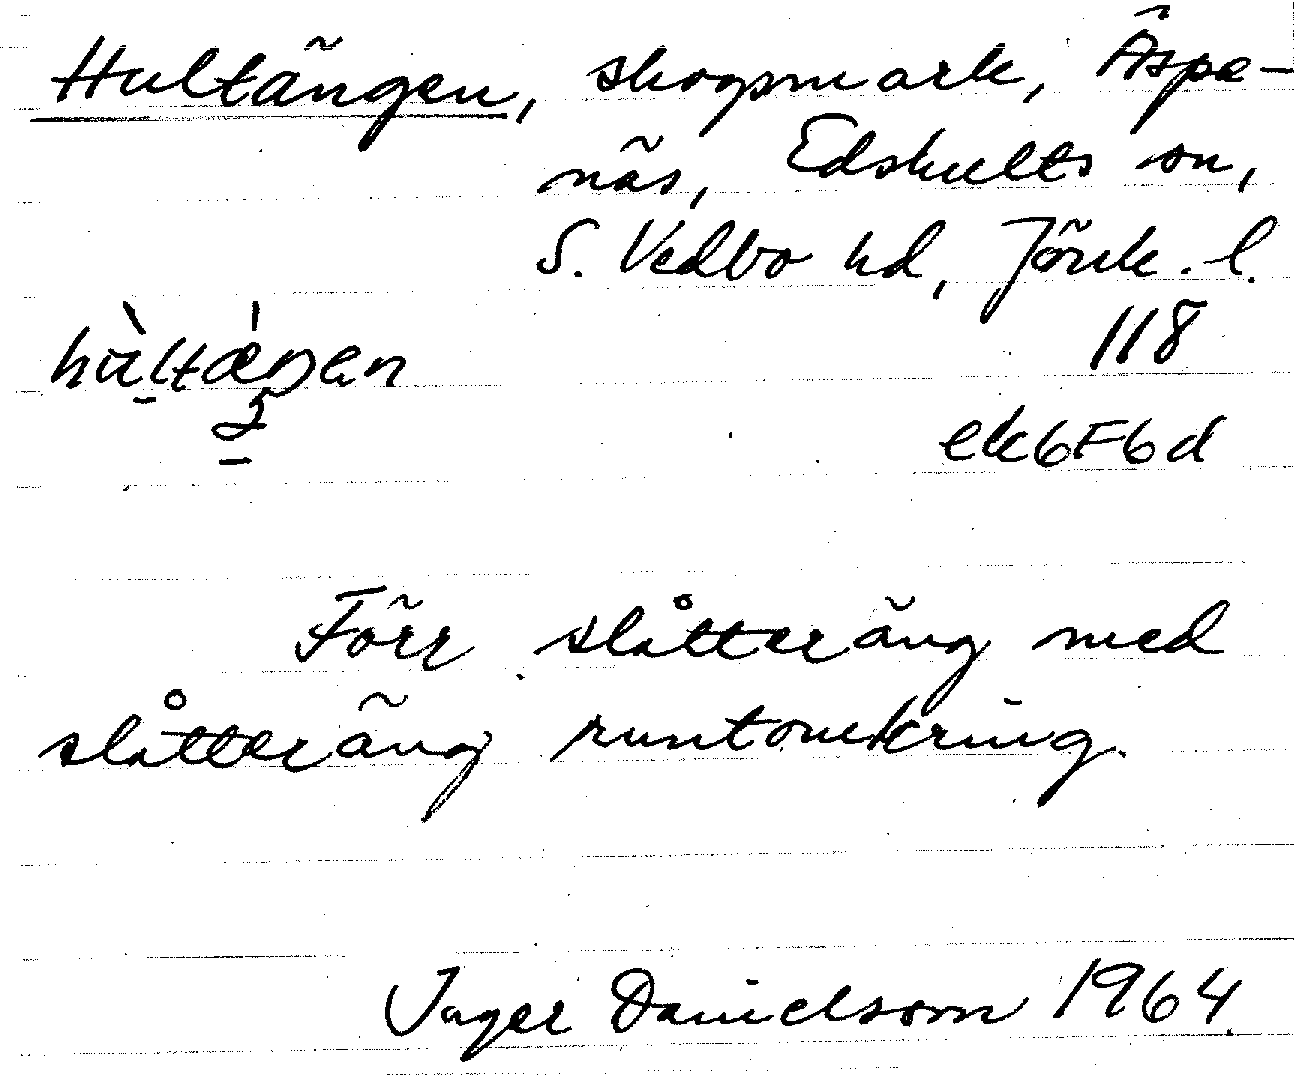 Hultängen, skogsmark, Äspe-
näs, Edshults sn,
S. Vedbo hd, Jönk. l.
hùltǽŋen
118
ek6F6d
Förr slåtteräng med
slåtteräng runtomkring.
Inger Danielsson 1964.